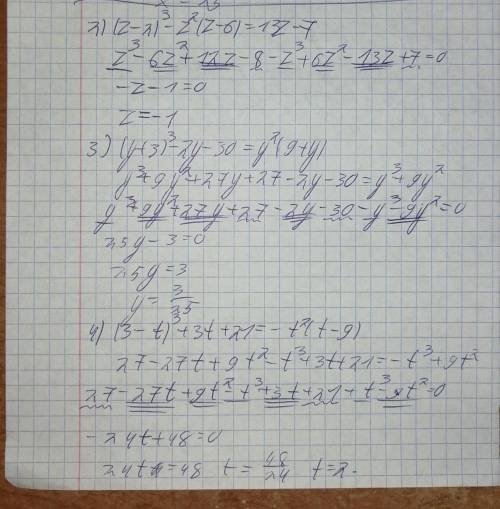 2) (z-2)³-z²(z-6)=13z-7
z³-6z²+12z-8-z³+6z²-13z+7=0
-z-1=0
z=-1
3) (y+3)³-2y-30=y²(9+y)
y³+9y²+27y+27-2y-30=y³+9y²
y³+9y²+27y+27-2y-30-y³-9y²=0
25y-3=0
25y=3
y=3/25
4) (3-t)³+3t+21=-t²(t-9)
27-27t+9t²-t³+3t+21=-t³+9t²
27-27t+9t²-t³+3t+21+t³-9t²=0
-24t+48=0
24t=48 t=48/24 t=2.